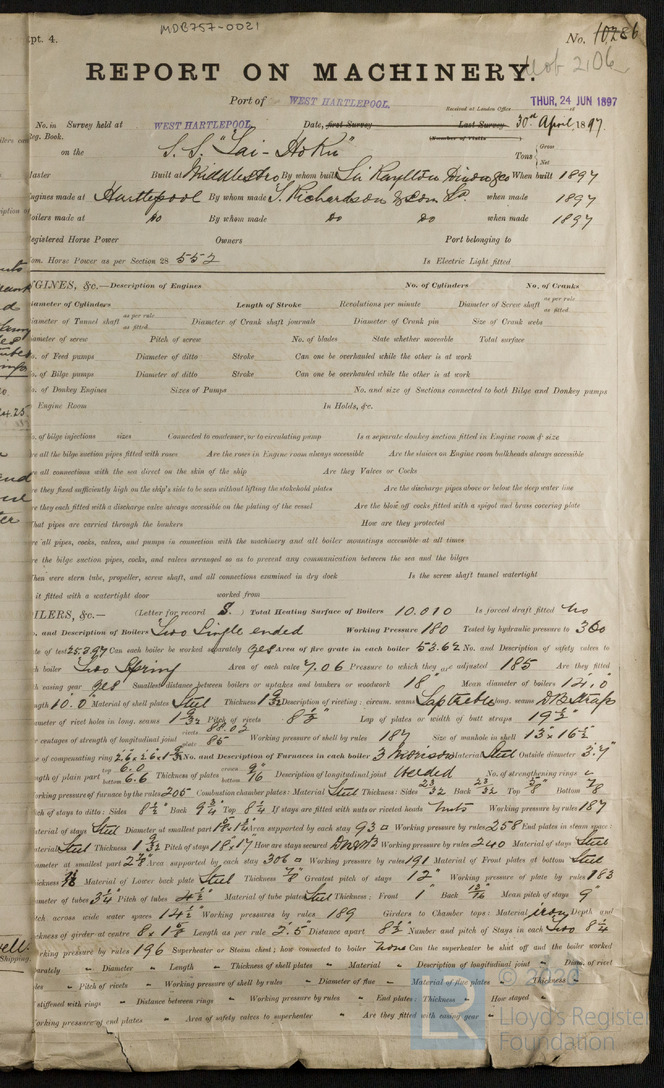 MDB757-0021
pt. 4.
No. 10286
REPORT ON MACHINERY.
Port of WEST HARTLEPOOL.
Received at London Office THUR, 24 JUN 1897
No. in Survey held at WEST HARTLEPOOL Date, first Survey Last Survey 30th April 1897
Reg. Book. (Number of Visits )
on the S.S. "Tai-Hoku" Tons { Gross Net
Master Built at Middlesbro By whom built Sir Raylton Dixon & Co When built 1897
Engines made at Hartlepool By whom made T. Richardson & Sons Ld. when made 1897
Boilers made at do By whom made do do when made 1897
Registered Horse Power Owners Port belonging to
Nom. Horse Power as per Section 28 552 Is Electric Light fitted
ENGINES, &c.—Description of Engines No. of Cylinders No. of Cranks
Diameter of Cylinders Length of Stroke Revolutions per minute Diameter of Screw shaft as per rule as fitted
Diameter of Tunnel shaft as per rule as fitted Diameter of Crank shaft journals Diameter of Crank pin Size of Crank webs
Diameter of screw Pitch of screw No. of blades State whether moveable Total surface
No. of Feed pumps Diameter of ditto Stroke Can one be overhauled while the other is at work
No. of Bilge pumps Diameter of ditto Stroke Can one be overhauled while the other is at work
No. of Donkey Engines Sizes of Pumps No. and size of Suctions connected to both Bilge and Donkey pumps
Engine Room In Holds, &c.
No. of bilge injections sizes Connected to condenser, or to circulating pump Is a separate donkey suction fitted in Engine room & size
Are all the bilge suction pipes fitted with roses Are the roses in Engine room always accessible Are the sluices on Engine room bulkheads always accessible
Are all connections with the sea direct on the skin of the ship Are they Valves or Cocks
Are they fixed sufficiently high on the ship's side to be seen without lifting the stokehold plates Are the discharge pipes above or below the deep water line
Are they each fitted with a discharge valve always accessible on the plating of the vessel Are the blow off cocks fitted with a spigot and brass covering plate
What pipes are carried through the bunkers How are they protected
Are all pipes, cocks, valves, and pumps in connection with the machinery and all boiler mountings accessible at all times
Are the bilge suction pipes, cocks, and valves arranged so as to prevent any communication between the sea and the bilges
When were stern tube, propeller, screw shaft, and all connections examined in dry dock Is the screw shaft tunnel watertight
Is it fitted with a watertight door worked from
BOILERS, &c.— (Letter for record S.) Total Heating Surface of Boilers 10.010 Is forced draft fitted No
No. and Description of Boilers Two Single ended Working Pressure 180 Tested by hydraulic pressure to 360
Date of test 25.3.97 Can each boiler be worked separately yes Area of fire grate in each boiler 53.62 No. and Description of safety valves to
each boiler Two Spring Area of each valve 7.06 Pressure to which they are adjusted 185 Are they fitted
with easing gear yes Smallest distance between boilers or uptakes and bunkers or woodwork 18" Mean diameter of boilers
Length 10.0" Material of shell plates Steel Thickness Description of riveting: circum. seams Lap treble long. seams D B Straps
Diameter of rivet holes in long. seams Pitch of rivets Lap of plates or width of butt straps
Per centages of strength of longitudinal joint rivets 88.02 plate 85 Working pressure of shell by rules 187 Size of manhole in shell
Size of compensating ring No. and Description of Furnaces in each boiler 3 Morison Material Steel Outside diameter 3.7"
Length of plain part top 6.0 bottom 6.6 Thickness of plates crown bottom 9/16 Description of longitudinal joint Welded No. of strengthening rings
Working pressure of furnace by the rules 205 Combustion chamber plates: Material Steel Thickness: Sides 23/32 Back 23/32 Top 5/8" Bottom 7/8
Pitch of stays to ditto: Sides 8½" Back 9¾" Top 8¼ If stays are fitted with nuts or riveted heads Nuts Working pressure by rules 187
Material of stays Steel Diameter at smallest part Area supported by each stay 93 □ Working pressure by rules 258 End plates in steam space:
Material Steel Thickness Pitch of stays 18×17" How are stays secured Working pressure by rules 240 Material of stays Steel
Diameter at smallest part Area supported by each stay 306 □ Working pressure by rules 191 Material of Front plates at bottom Steel
Thickness Material of Lower back plate Steel Thickness 7/8" Greatest pitch of stays 12" Working pressure of plate by rules 183
Diameter of tubes 3¼" Pitch of tubes 4½" Material of tube plates Steel Thickness: Front 1" Back 13/16" Mean pitch of stays 9"
Pitch across wide water spaces 14½" Working pressures by rules 189 Girders to Chamber tops: Material iron Depth and
thickness of girder at centre Length as per rule 2.5 Distance apart 8½" Number and pitch of Stays in each Two 8¼
Working pressure by rules 196 Superheater or Steam chest; how connected to boiler None Can the superheater be shut off and the boiler worked
separately - Diameter - Length - Thickness of shell plates - Material - Description of longitudinal joint - Diam. of rivet
holes - Pitch of rivets - Working pressure of shell by rules - Diameter of flue - Material of flue plates - Thickness -
If stiffened with rings - Distance between rings - Working pressure by rules - End plates: Thickness - How stayed -
Working pressure of end plates - Area of safety valves to superheater - Are they fitted with easing gear -
© 2020
Lloyd's Register
Foundation